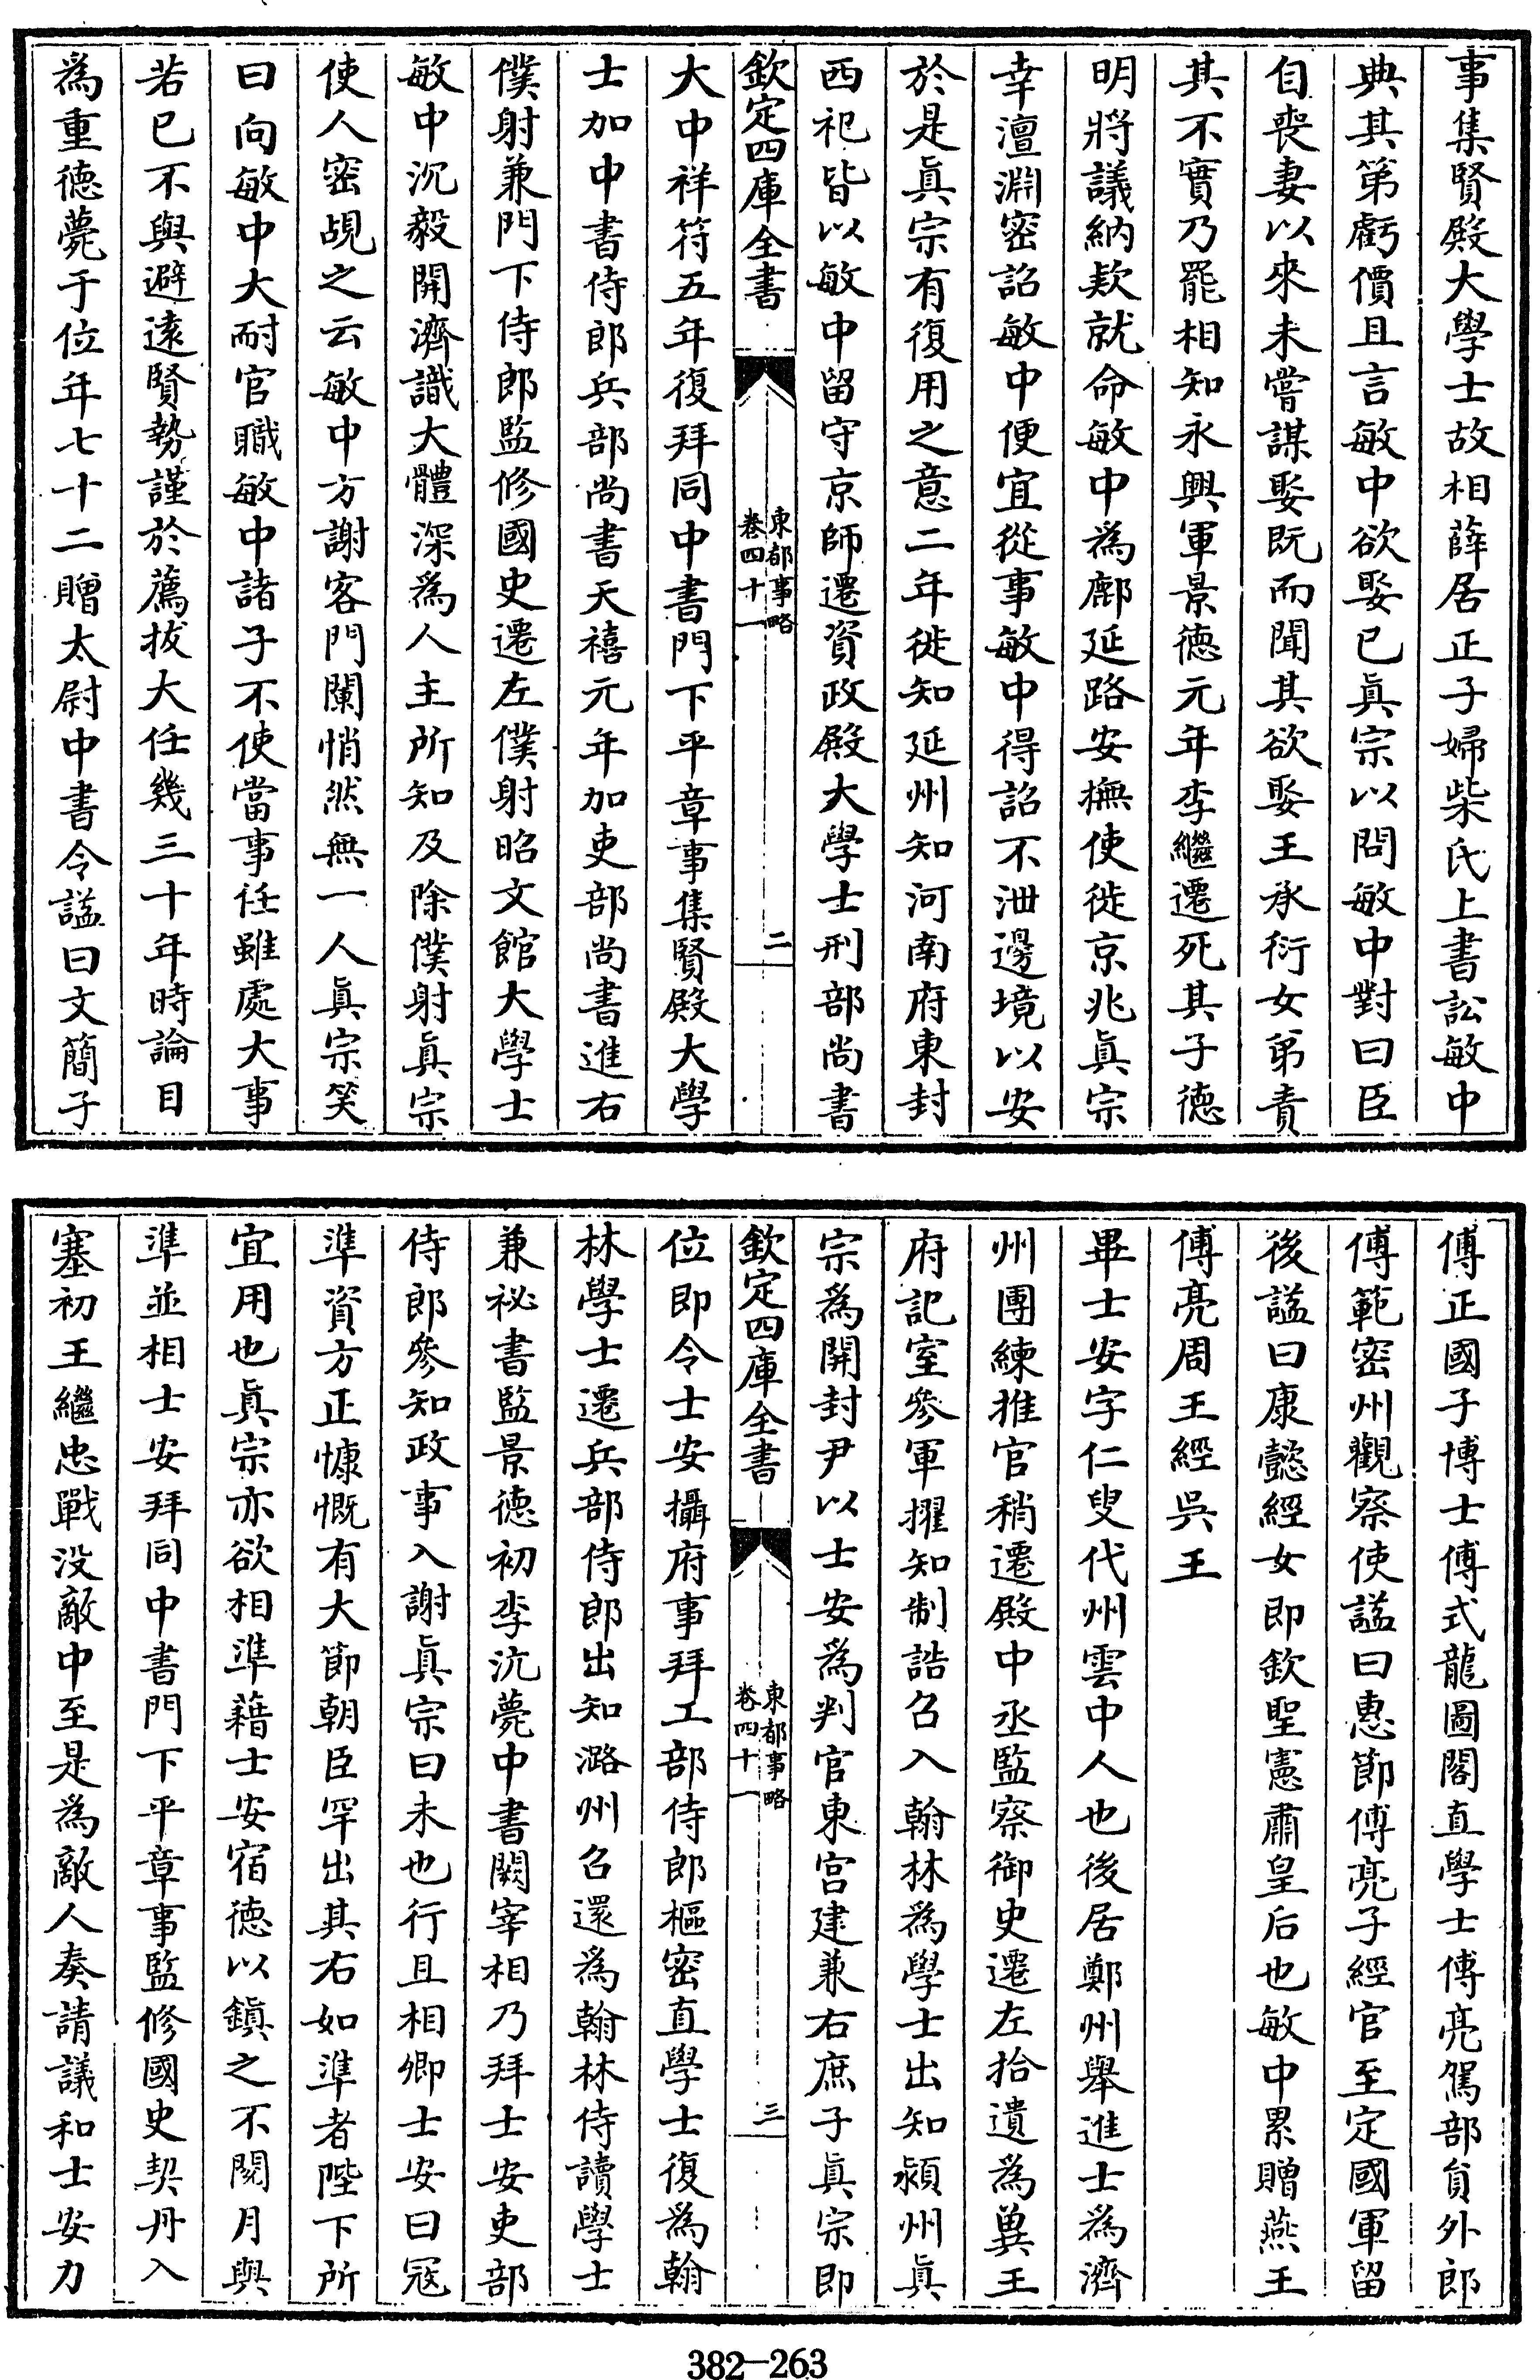 事集賢殿大學士故相薛居正子婦柴氏上書訟敏中
典其第虧價且言敏中欲娶已真宗以問敏中對曰臣
自喪妻以來未嘗謀娶既而聞其欲娶王承衍女弟責
其不實乃罷相知永興軍景德元年李繼遷死其子德
明將議納欵就命敏中為鄜延路安撫使徙京兆真宗
幸澶淵密詔敏中便宜從事敏中得詔不泄邊境以安
於是真宗有復用之意二年徙知延州知河南府東封
西祀皆以敏中留守京師遷資政殿大學士刑部尚書
欽定四庫全書
東都事略
卷四十一
二
大中祥符五年復拜同中書門下平章事集賢殿大學
士加中書侍郎兵部尚書天禧元年加吏部尚書進右
僕射兼門下侍郎監修國史遷左僕射昭文館大學士
敏中沉毅開濟識大體深為人主所知及除僕射真宗
使人密覘之云敏中方謝客門闌悄然無一人真宗笑
曰向敏中大耐官職敏中諸子不使當事任雖處大事
若已不與避遠賢勢謹於薦拔大任幾三十年時論目
為重德薨于位年七十二贈太尉中書令諡曰文簡子
傅正國子博士傅式龍圖閣直學士傅亮駕部員外郎
傅範密州觀察使諡曰惠節傅亮子經官至定國軍留
後諡曰康懿經女即欽聖憲肅皇后也敏中累贈燕王
傅亮周王經吳王
畢士安字仁叟代州雲中人也後居鄭州舉進士為濟
州團練推官稍遷殿中丞監察御史遷左拾遺為冀王
府記室參軍擢知制誥召入翰林為學士出知潁州真
宗為開封尹以士安為判官東宮建兼右庶子真宗即
欽定四庫全書
東都事略
卷四十一
三
位即令士安攝府事拜工部侍郎樞密直學士復為翰
林學士遷兵部侍郎出知潞州召還為翰林侍讀學士
兼祕書監景德初李沆薨中書闕宰相乃拜士安吏部
侍郎參知政事入謝真宗曰未也行且相卿士安曰冦
準資方正慷慨有大節朝臣罕出其右如準者陛下所
宜用也真宗亦欲相準藉士安宿德以鎮之不閱月與
準並相士安拜同中書門下平章事監修國史契丹入
塞初王繼忠戰没敵中至是為敵人奏請議和士安力
382-263